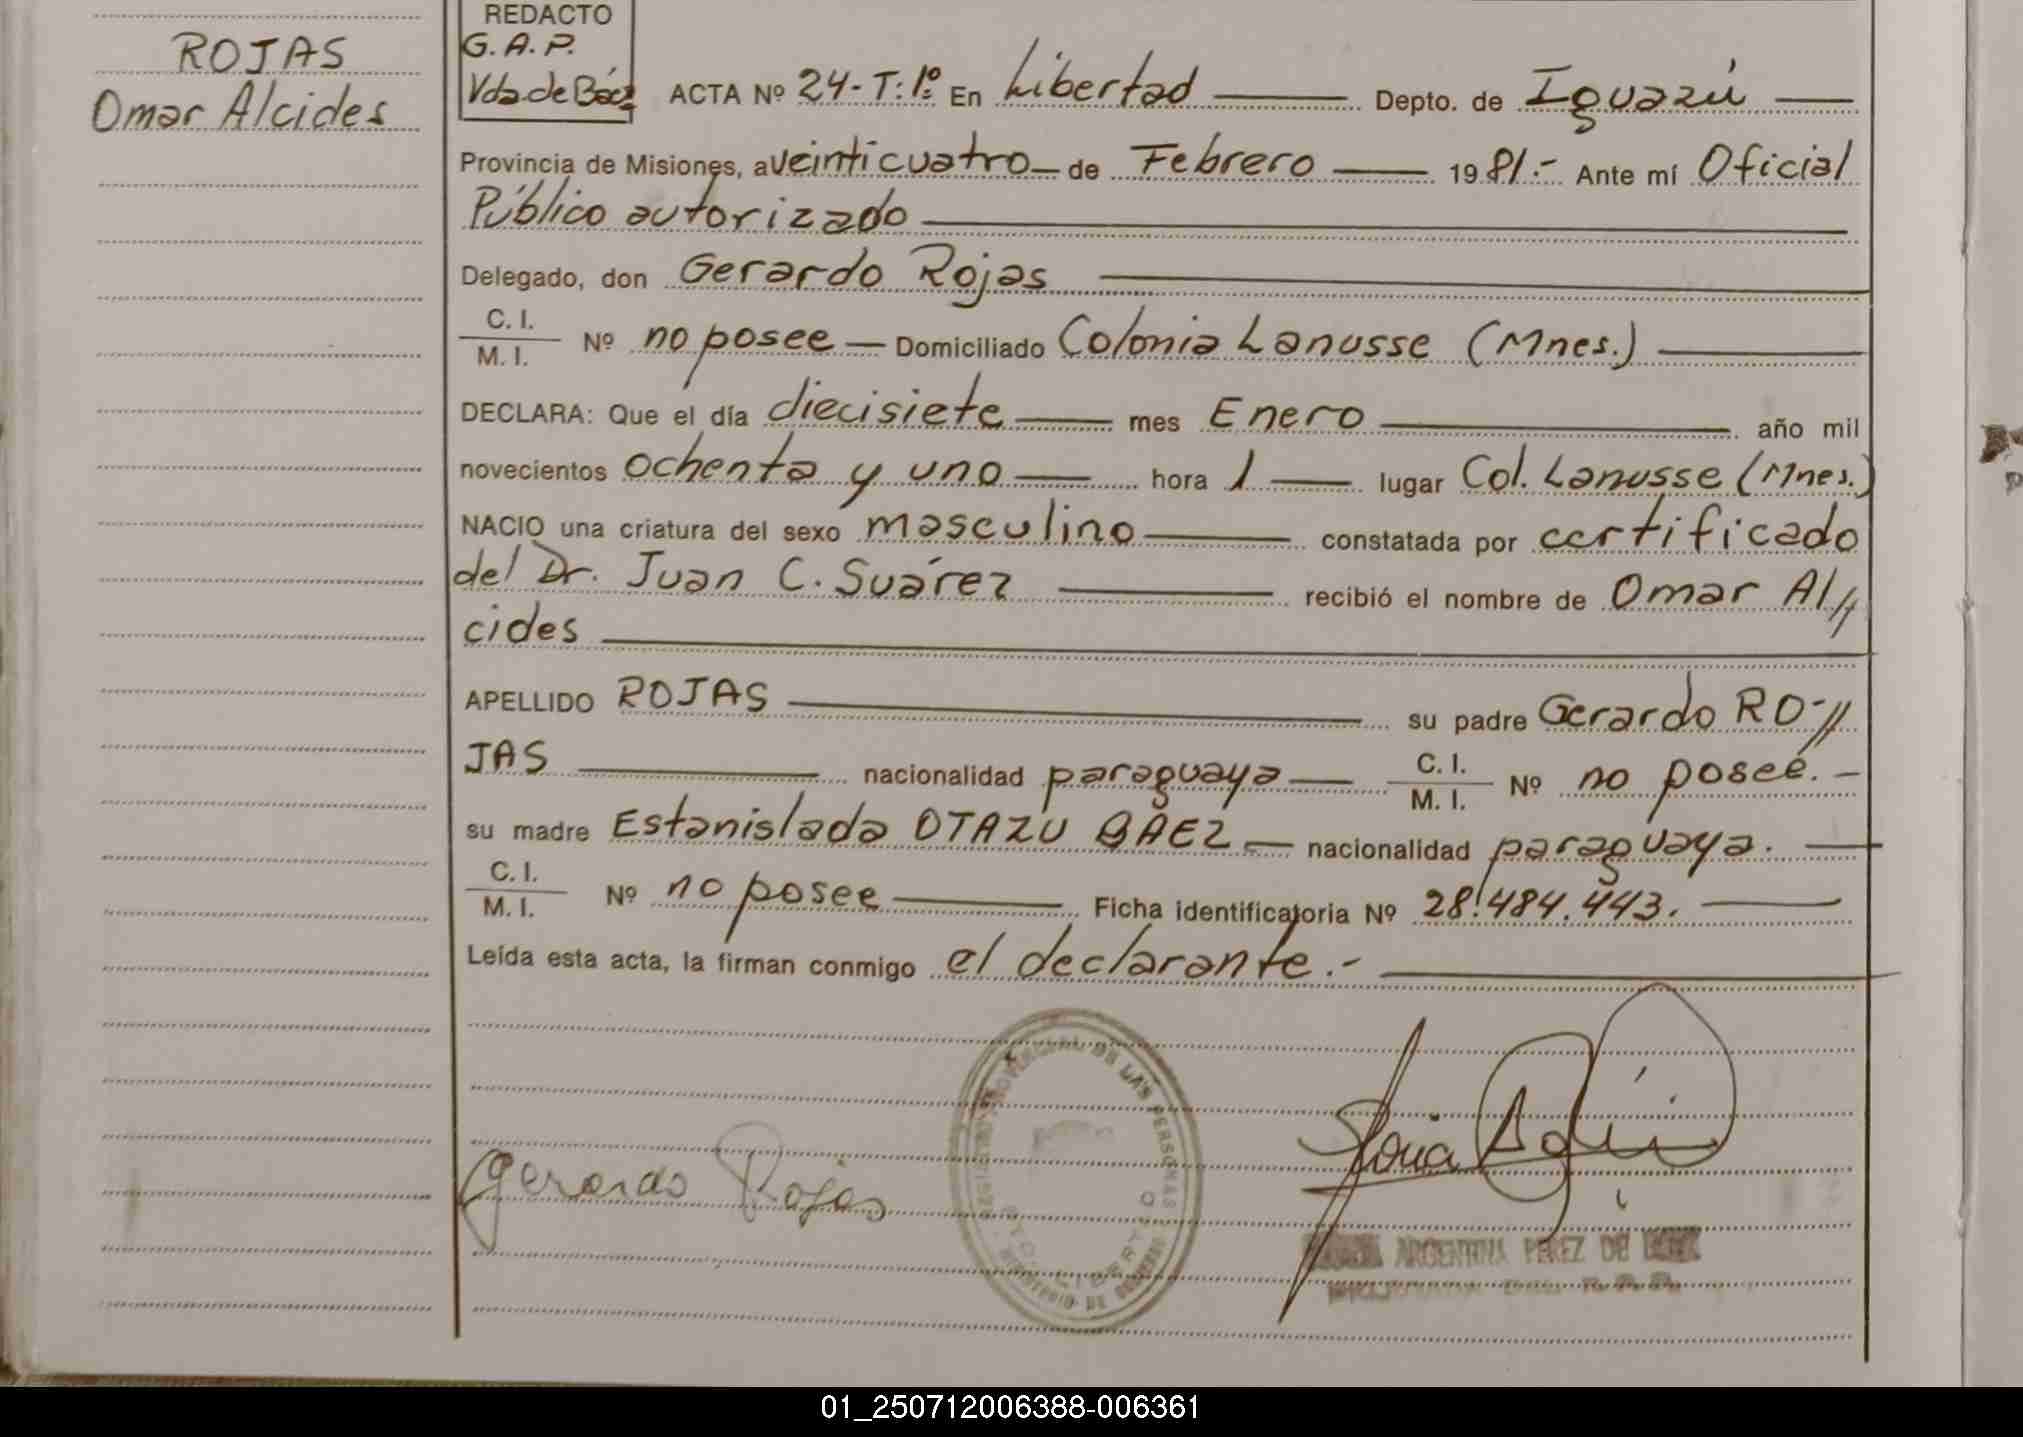 ROJAS
Omar Alcides
REDACTO
G. A. P.
Vda de Báez
ACTA Nº 24- T: 1º. En Libertad Depto. de Iguazú
Provincia de Misiones, a veinticuatro de Febrero 1981.- Ante mí Oficial
Público autorizado
Delegado, don Gerardo Rojas
C. I.
M. I. Nº no posee Domiciliado Colonia Lanusse (Mnes.)
DECLARA: Que el día diecisiete mes Enero año mil
novecientos ochenta y uno hora 1 lugar Col. Lanusse (Mnes.)
NACIO una criatura del sexo masculino constatada por certificado
del Dr. Juan C. Suárez recibió el nombre de Omar Al//
cides
APELLIDO ROJAS su padre Gerardo RO-//
JAS nacionalidad paraguaya C. I.
M. I. Nº no posee.-
su madre Estanislada OTAZU BAEZ nacionalidad paraguaya.
C. I.
M. I. Nº no posee Ficha identificatoria Nº 28.484.443.
Leída esta acta, la firman conmigo el declarante.-
PROVINCIAL DE LAS PERSONAS
MINISTERIO DE GOBIERNO
LIBERTAD
Gerardo Rojas
ARGENTINA PEREZ DE
01_250712006388-006361